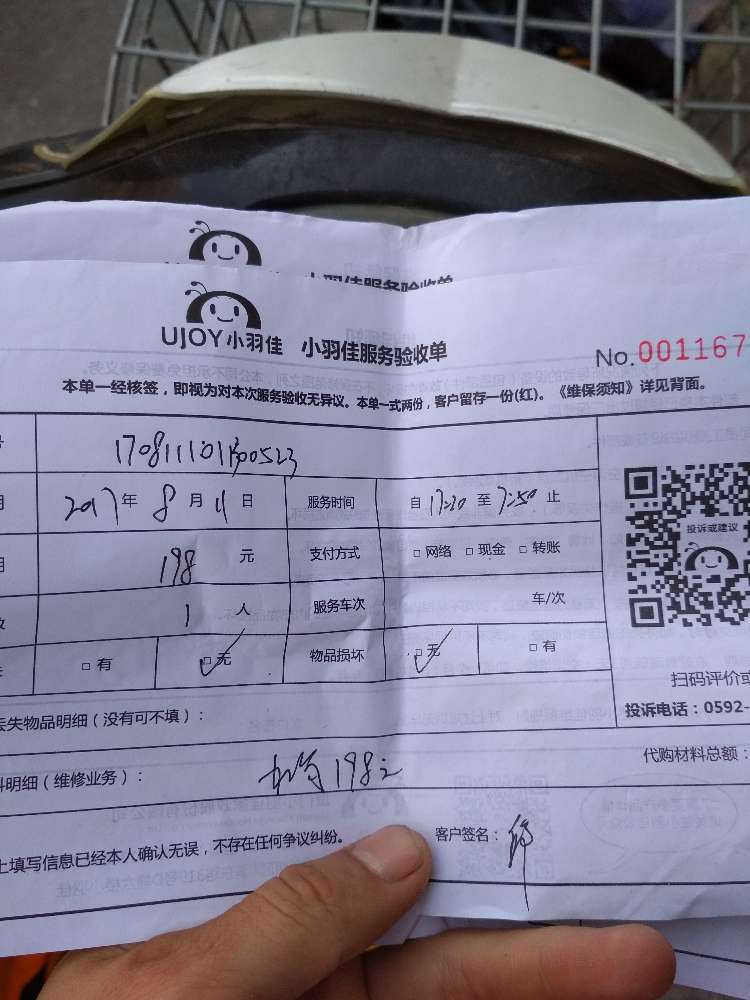 小羽佳服务验收单
UJOY小羽佳 小羽佳服务验收单 No.001167
本单一经核签，即视为对本次服务验收无异议。本单一式两份，客户留存一份(红)。《维保须知》详见背面。
2017年 8月 11日 服务时间 自 17:30 至 7:50 止
198 元 支付方式 □ 网络 □ 现金 □ 转账
投诉或建议
1 人 服务车次 车/次
□ 有 □ 无 物品损坏 □ 无 □ 有
扫码评价或
丢失物品明细（没有可不填）： 投诉电话：0592-
料明细（维修业务）： 198元 代购材料总额：
上填写信息已经本人确认无误，不存在任何争议纠纷。 客户签名：